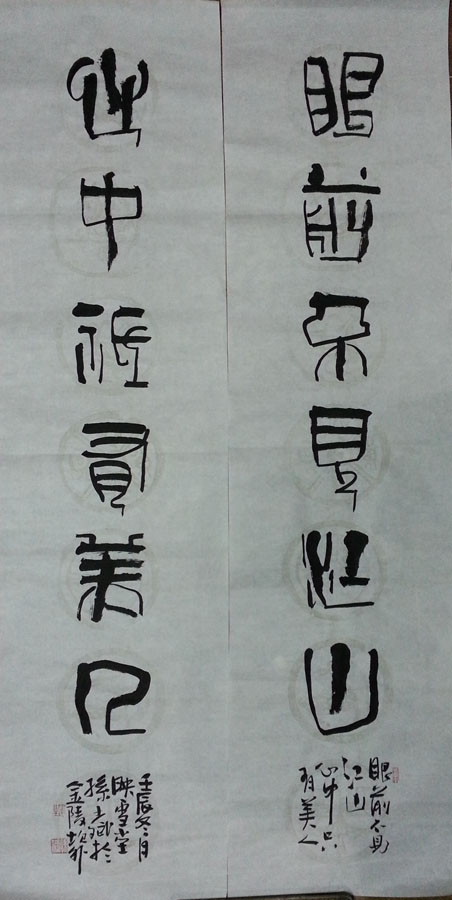 眼前不見江山
眼前不見
江山
心中只
有美人
心中祇有美人
壬辰冬月
映雪堂
孫 於
金陵